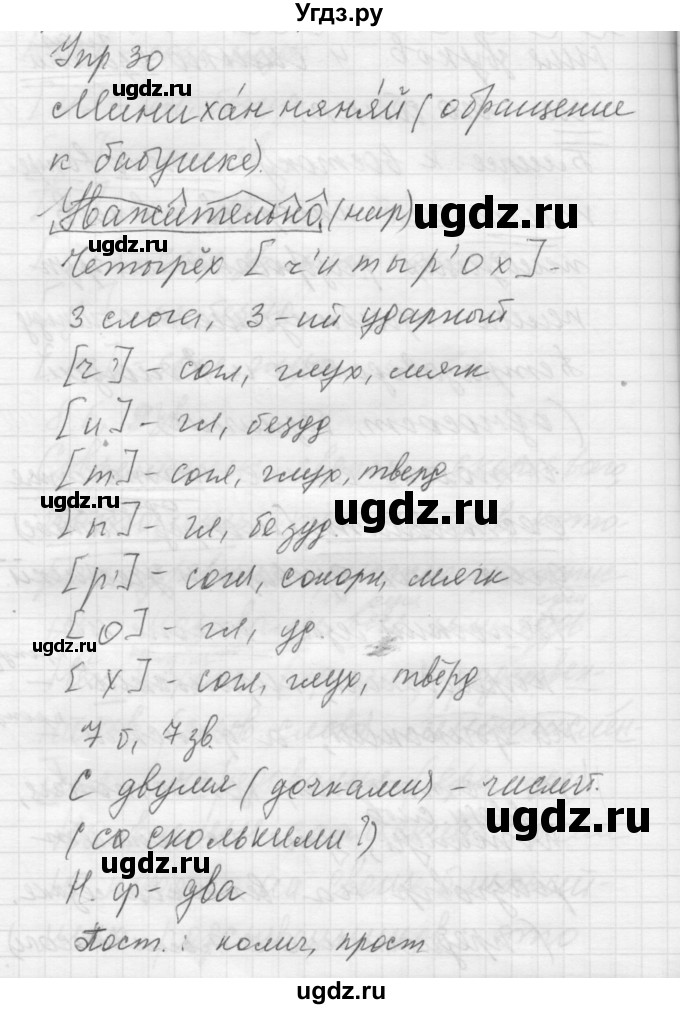 Угдз.ру
Упр 30
ugdz.ru
Миниха́н няня́й (обращение
к бабушке).
ugdz.ru
Уважительно (нар)
ugdz.ru
Четырёх [ч'итыр'ох] -
3 слога, 3-ий ударный
[ч'] - согл, глух, мягк
[и] - гл, безуд
[т] - согл, глух, тверд
ugdz.ru
[ы] - гл, безуд.
ugdz.ru
[р'] - согл, сонорн, мягк
[о] - гл, уд.
ugdz.ru
[х] - согл, глух, твёрд
7 б, 7 зв.
С двумя (дочками) - числит.
ugdz.ru
(со сколькими?)
ugdz.ru
Н. ф - два
Пост.: колич, прост
ugdz.ru